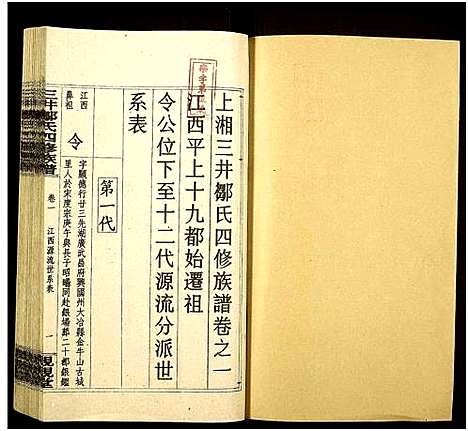 上湘三井鄒氏四修族譜卷之一
江西平上十九都始遷祖
令公位下至十二代源流分派世
系表
第一代
江西
鼻祖
令
字顯德行廿三先湖廣武昌府興國州大冶縣金牛山古城
里人於宋度宗庚午與長子昭暘同赴銀場薜二十都銀鑑
三井鄒氏四修族譜
卷一
江西源流世系表
一